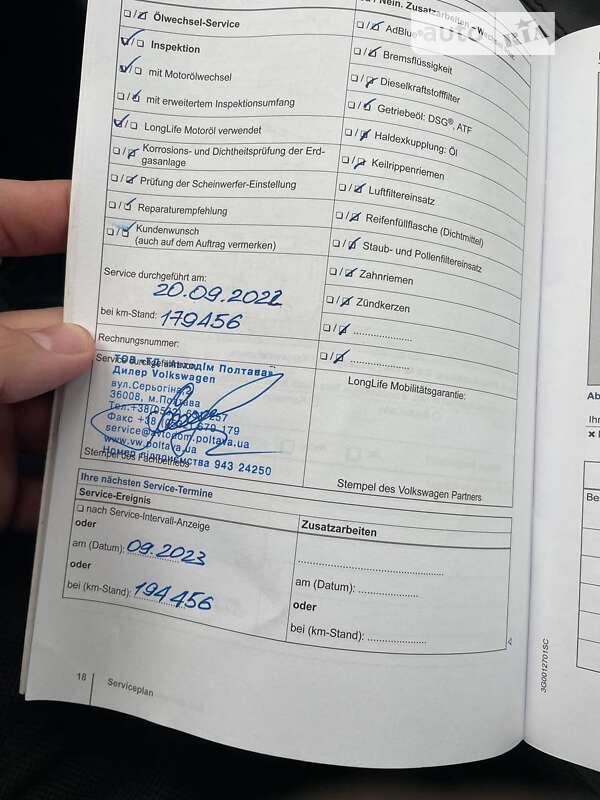 Ölwechsel-Service
Inspektion
mit Motorölwechsel
mit erweitertem Inspektionsumfang
LongLife Motoröl verwendet
Korrosions- und Dichtheitsprüfung der Erd-
gasanlage
Prüfung der Scheinwerfer-Einstellung
Reparaturempfehlung
Kundenwunsch
(auch auf dem Auftrag vermerken)
Service durchgeführt am:
20.09.2022
bei km-Stand: 179456
Rechnungsnummer:
Service durchgeführt
Дилер Volkswagen
вул.Серьогіна,
36008, м.Полтава
service@avtodom.poltava.ua
www.vw.poltava.ua
Номер підприємства 943 24250
Stempel des Fachbetriebs
/ Nein. Zusatzarbeiten
AdBlue
Bremsflüssigkeit
Dieselkraftstofffilter
Getriebeöl: DSG®, ATF
Haldexkupplung: Öl
Keilrippenriemen
Luftfiltereinsatz
Reifenfüllflasche (Dichtmittel)
Staub- und Pollenfiltereinsatz
Zahnriemen
Zündkerzen
LongLife Mobilitätsgarantie:
Stempel des Volkswagen Partners
Ihre nächsten Service-Termine
Service-Ereignis
nach Service-Intervall-Anzeige
oder
am (Datum): 09.2023
oder
bei (km-Stand): 194 456
Zusatzarbeiten
am (Datum):
oder
bei (km-Stand):
18
Serviceplan
3G0012701SC
auto RIA
Ab
Ihr
Be